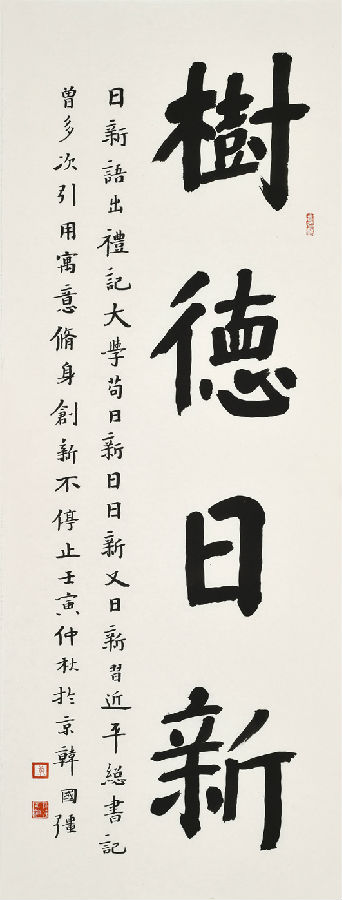 樹德日新
日新語出禮記大學苟日新日日新又日新習近平總書記
曾多次引用寓意脩身創新不停止壬寅仲秋於京韓國彊